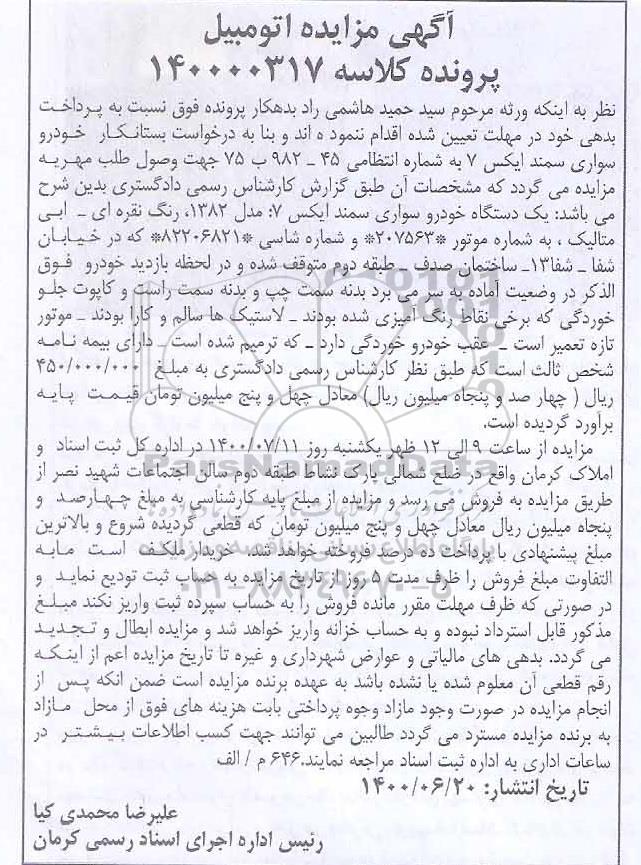 آگهی مزایده اتومبیل
پرونده کلاسه ۱۴۰۰۰۰۳۱۷
نظر به اینکه ورثه مرحوم سید حمید هاشمی راد بدهکار پرونده فوق نسبت به پرداخت
بدهی خود در مهلت تعیین شده اقدام ننمود ه اند و بنا به درخواست بستانکار خودرو
سواری سمند ایکس ۷ به شماره انتظامی ۴۵ ـ ۹۸۲ ب ۷۵ جهت وصول طلب مهریه
مزایده می گردد که مشخصات آن طبق گزارش کارشناس رسمی دادگستری بدین شرح
می باشد: یک دستگاه خودرو سواری سمند ایکس ۷: مدل ۱۳۸۲، رنگ نقره ای ـ ابی
متالیک ، به شماره موتور *۲۰۷۵۶۳* و شماره شاسی *۸۲۲۰۶۸۲۱* که در خیابان
شفا ـ شفا۱۳ـ ساختمان صدف ـ طبقه دوم متوقف شده و در لحظه بازدید خودرو فوق
الذکر در وضعیت آماده به سر می برد بدنه سمت چپ و بدنه سمت راست و کاپوت جلو
خوردگی که برخی نقاط رنگ آمیزی شده بودند ـ لاستیک ها سالم و کارا بودند ـ موتور
تازه تعمیر است ـ عقب خودرو خوردگی دارد ـ که ترمیم شده است ـ دارای بیمه نامه
شخص ثالث است که طبق نظر کارشناس رسمی دادگستری به مبلغ ۴۵۰/۰۰۰/۰۰۰
ریال ( چهار صد و پنجاه میلیون ریال) معادل چهل و پنج میلیون تومان قیمت پایه
برآورد گردیده است.
مزایده از ساعت ۹ الی ۱۲ ظهر یکشنبه روز ۱۴۰۰/۰۷/۱۱ در اداره کل ثبت اسناد و
املاک کرمان واقع در ضلع شمالی پارک نشاط طبقه دوم سالن اجتماعات شهید نصر از
طریق مزایده به فروش می رسد و مزایده از مبلغ پایه کارشناسی به مبلغ چهارصد و
پنجاه میلیون ریال معادل چهل و پنج میلیون تومان که قطعی گردیده شروع و بالاترین
مبلغ پیشنهادی با پرداخت ده درصد فروخته خواهد شد. خریدار ملکف است مابه
التفاوت مبلغ فروش را ظرف مدت ۵ روز از تاریخ مزایده به حساب ثبت تودیع نماید و
در صورتی که ظرف مهلت مقرر مانده فروش را به حساب سپرده ثبت واریز نکند مبلغ
مذکور قابل استرداد نبوده و به حساب خزانه واریز خواهد شد و مزایده ابطال و تجدید
می گردد. بدهی های مالیاتی و عوارض شهرداری و غیره تا تاریخ مزایده اعم از اینکه
رقم قطعی آن معلوم شده یا نشده باشد به عهده برنده مزایده است ضمن انکه پس از
انجام مزایده در صورت وجود مازاد وجوه پرداختی بابت هزینه های فوق از محل مازاد
به برنده مزایده مسترد می گردد طالبین می توانند جهت کسب اطلاعات بیشتر در
ساعات اداری به اداره ثبت اسناد مراجعه نمایند.۶۴۶ م / الف
تاریخ انتشار: ۱۴۰۰/۰۶/۲۰
علیرضا محمدی کیا
رئیس اداره اجرای اسناد رسمی کرمان
ParsNamadData
۰۲۱-۸۸۳۴۹۶۷۰-۵